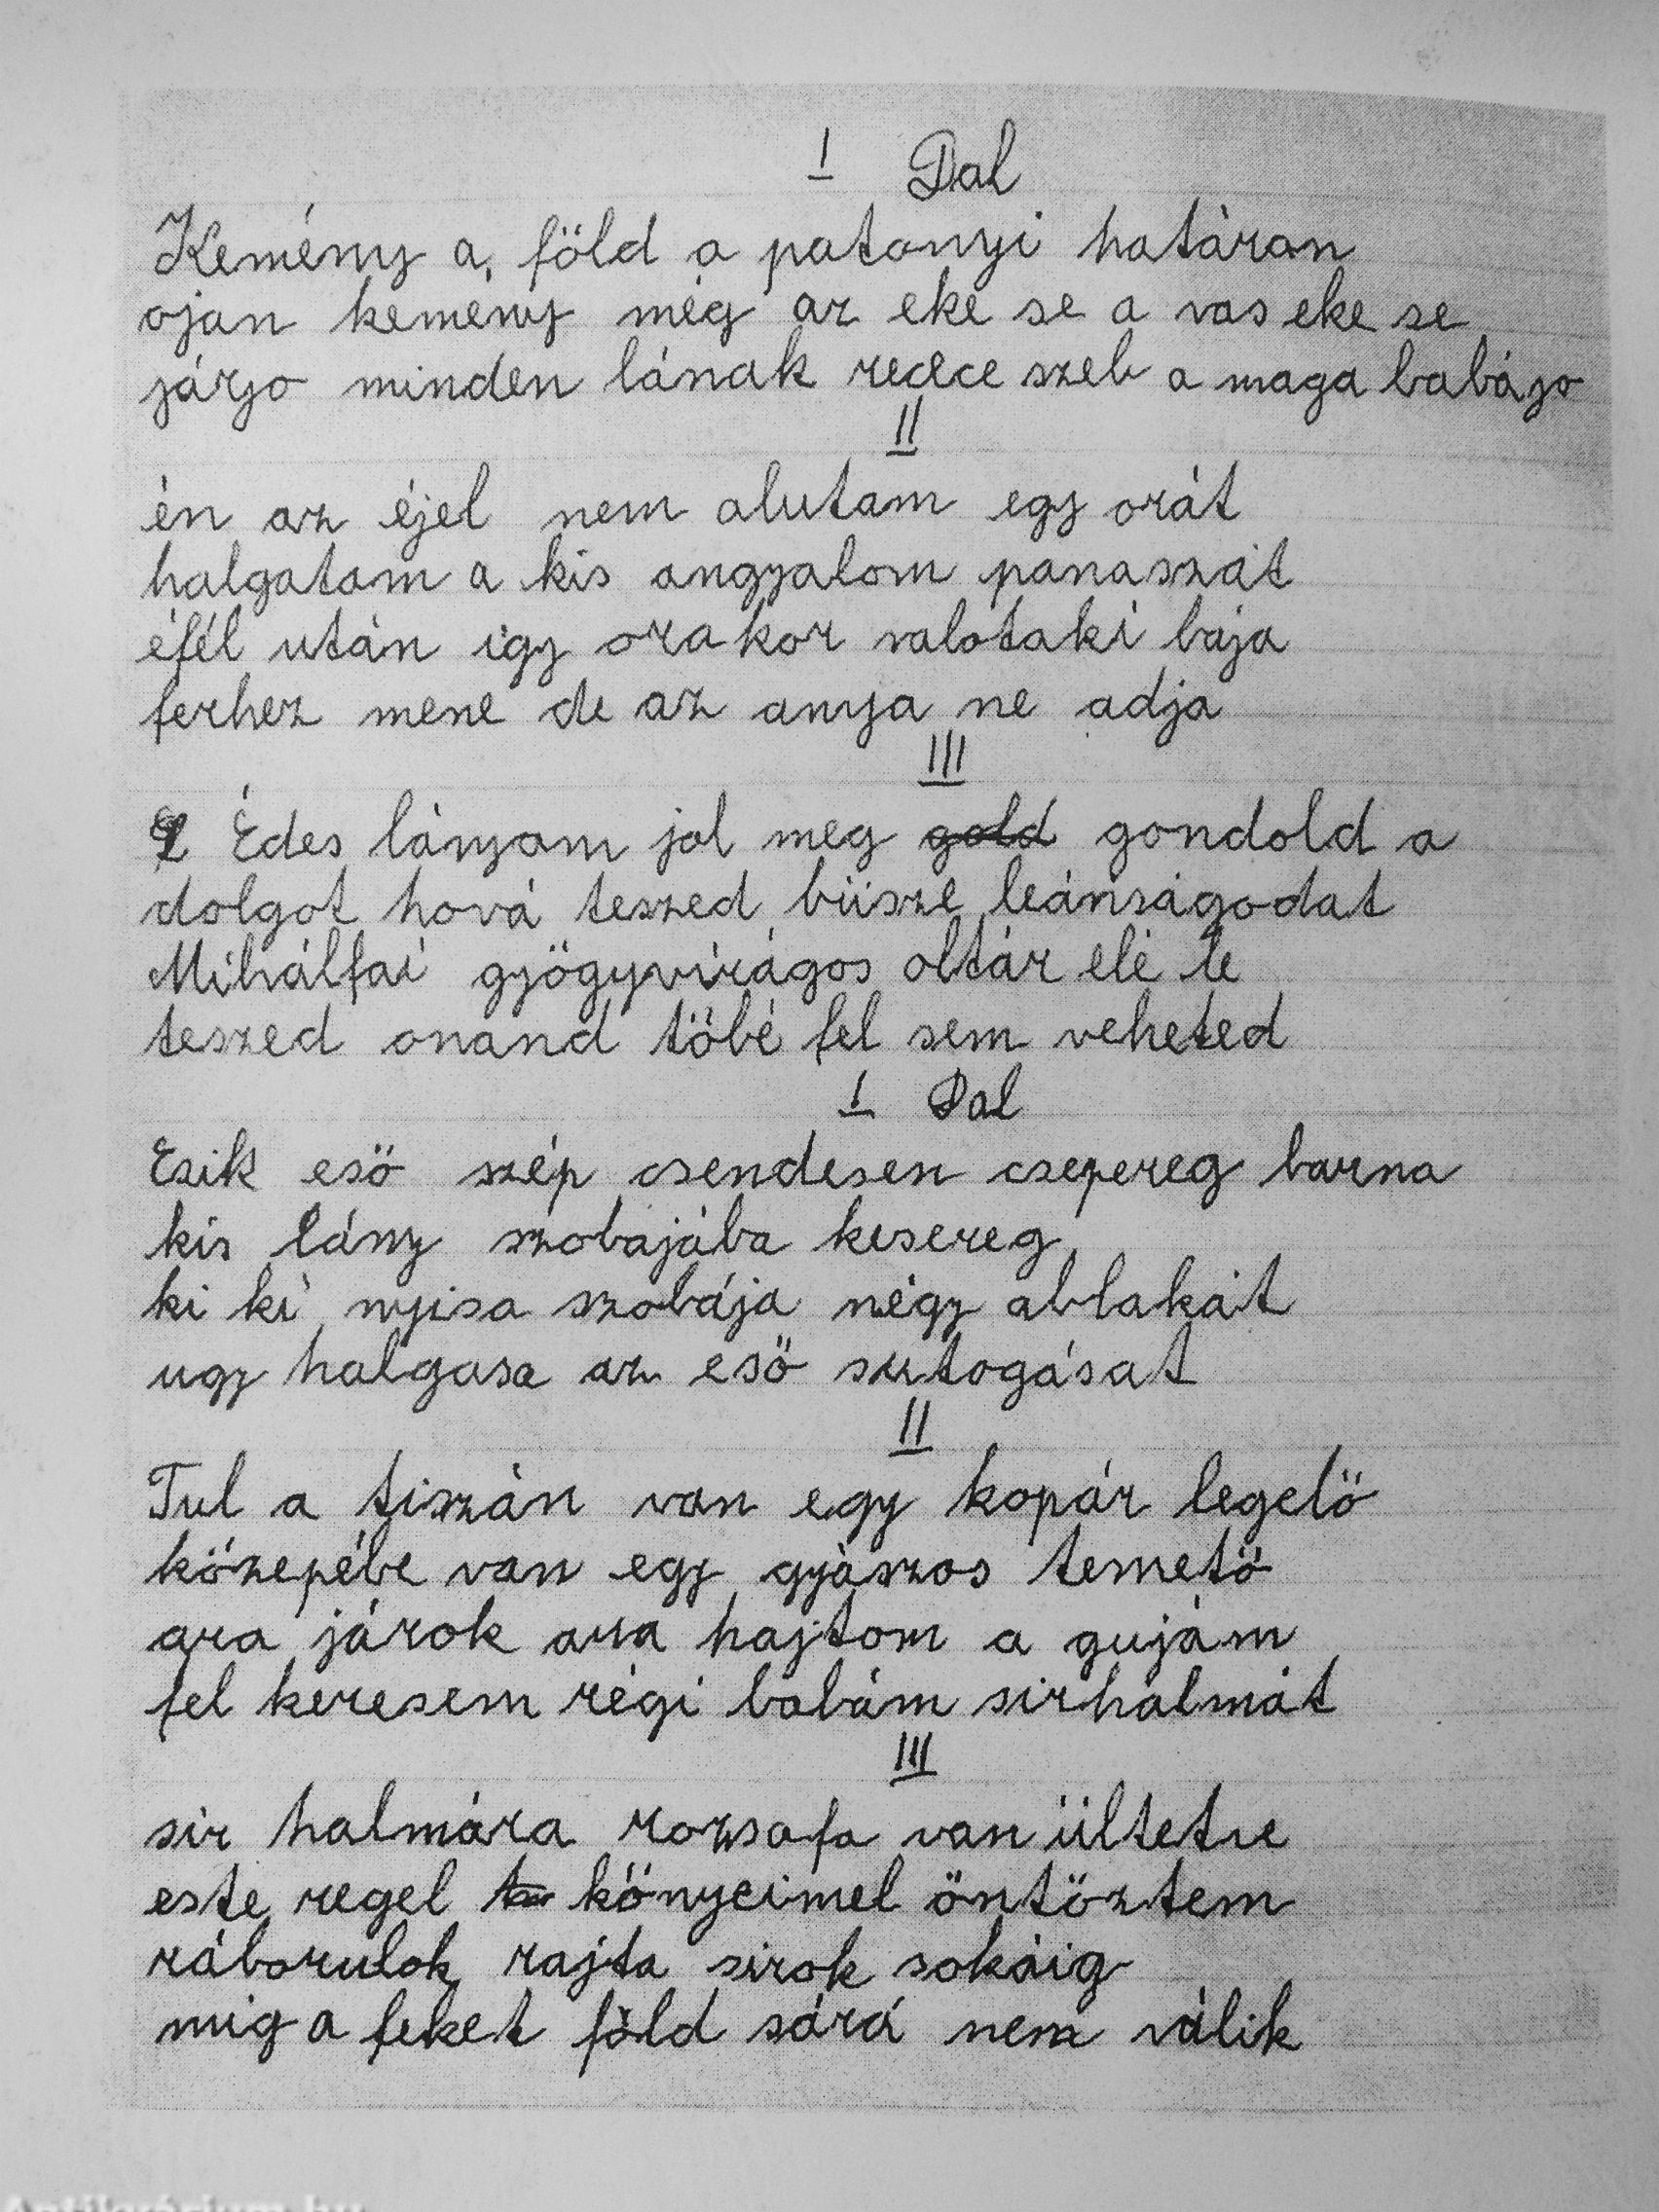 I Dal
Kemény a, föld a patonyi határan
ojan kemény még az eke se a vas eke se
járjo minden lának szeb a maga babájo
II
én az éjel nem alutam egy orát
halgatam a kis angyalom panaszát
éfél után igy ora kor valotaki baja
ferhez mene de az anyja ne adja
III
Édes lányom jol meg gold gondold a
dolgot hová teszed büszle leánságodat
Mihálfai gyögyvirágos oltár elé le
teszed onand töbé fel sem veheted
I Dal
Esik esö szép csendesen csepereg barna
kis lány szobajába kesereg
ki ki nyisa szobája négy ablakát
ugy halgasa az esö sutogásat
II
Tul a tiszán van egy kopár legelö
közepébe van egy gyászos temetö
ara járok ara hajtom a gujám
fel keresem régi babám sirhalmát
III
sir halmára rozsafa van ültetve
este regel könyeimel öntöztem
ráborulok rajta sirok sokáig
mig a feket föld sárá nem válik